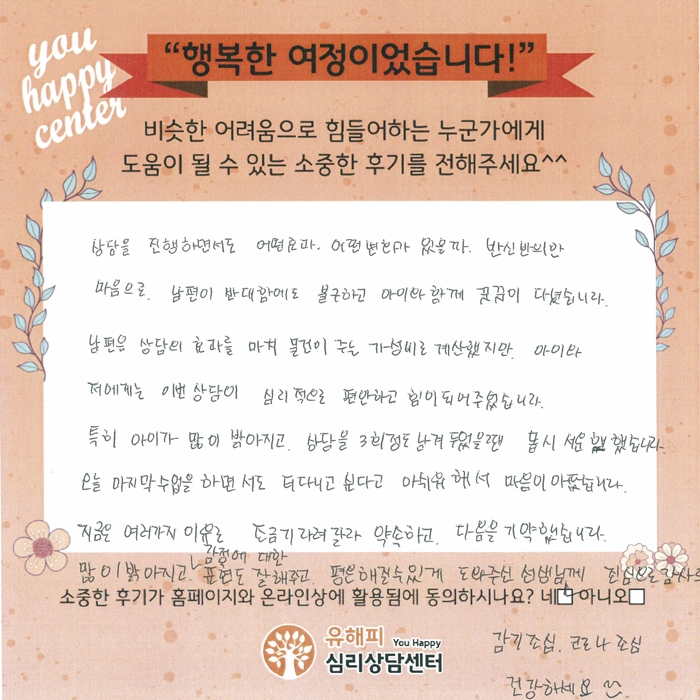 you
happy
center
“행복한 여정이었습니다!”
비슷한 어려움으로 힘들어하는 누군가에게
도움이 될 수 있는 소중한 후기를 전해주세요^^
상담을 진행하면서도 어떤효과. 어떤변화가 있을까. 반신반의한
마음으로. 남편이 반대함에도 불구하고 아이와 함께 꾿꾿이 다녔습니다.
남편은 상담의 효과를 마치 물건이 주는 가성비로 계산했지만. 아이와
저에게는 이번 상담이 심리적으로 편안하고 힘이되어주었습니다.
특히 아이가 많이 밝아지고. 상담을 3회정도 남겨 두었을땐 몹시 서운 했습니다.
오늘 마지막수업을 하면서도 더다니고 싶다고 아쉬워 해서 마음이 아팠습니다.
지금은 여러가지 이유로 조금기다려달라 약속하고. 다음을 기약했습니다.
감정에 대한
많이 밝아지고. 표현도 잘해주고. 편은해질수있게 도와주신 선생님께 진심으로 감사
소중한 후기가 홈페이지와 온라인상에 활용됨에 동의하시나요? 네 아니오
감기조심. 코로나 조심
건강하세요
유해피 You Happy
심리상담센터